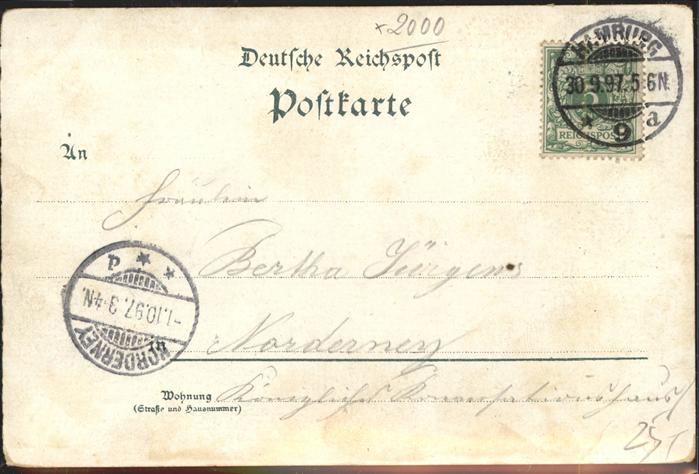 × 2000
Deutsche Reichspost
Postkarte
HAMBURG
30.9.97.5-6N.
* 9 a
5
REICHSPOST
An
Fräulein
Bertha Jürgens
Norderney
d * *
-1.10.97.3-4N.
NORDERNEY
Wohnung
(Straße und Hausnummer)
Königliches
25,